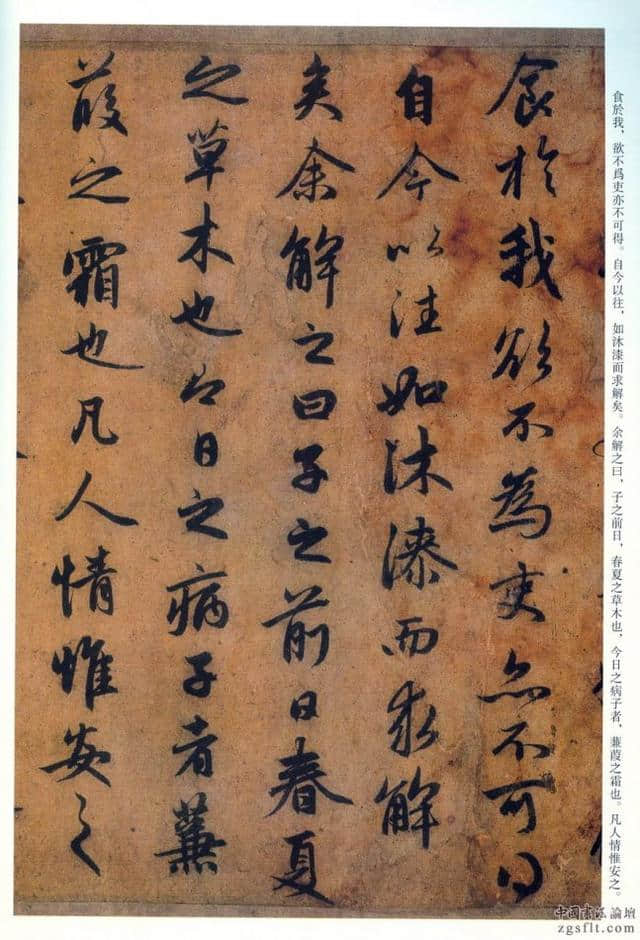 食於我，欲不爲吏亦不可得。自今以往，如沐漆而求解矣。余解之曰，子之前日，春夏之草木也，今日之病子者，蒹葭之霜也。凡人情惟安之。
食於我欲不為吏亦不可得
自今以往如沐漆而求解
矣余解之曰子之前日春夏
之草木也今日之病子者蒹
葭之霜也凡人情惟安之
中國書法論壇
zgsflt.com